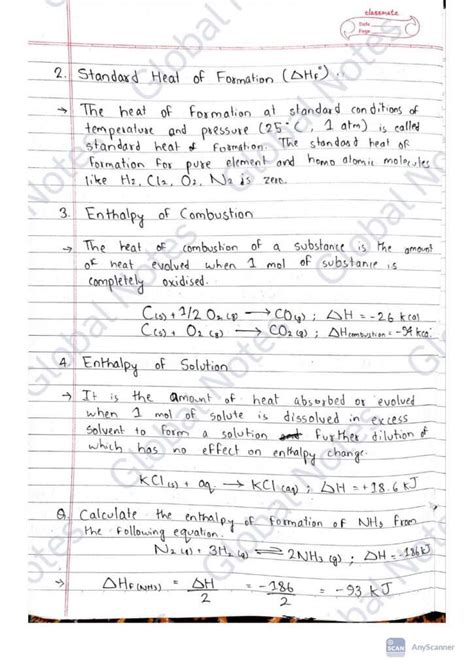 classmate
Date
Page
2. Standard Heat of Formation (ΔHf°) ..
→ The heat of formation at standard conditions of
temperature and pressure (25°C, 1 atm) is called
standard heat of formation. The standard heat of
formation for pure element and homo atomic molecules
like H₂, Cl₂, O₂, N₂ is zero.
3. Enthalpy of Combustion
→ The heat of combustion of a substance is the amount
of heat evolved when 1 mol of substance is
completely oxidised.
C(s) + 1/2 O₂(g) → CO(g) ; ΔH = -26 kcal
C(s) + O₂(g) → CO₂(g) ; ΔHcombustion = -94 kcal
4. Enthalpy of Solution
→ It is the amount of heat absorbed or evolved
when 1 mol of solute is dissolved in excess
solvent to form a solution further dilution of
which has no effect on enthalpy change.
KCl(s) + aq. → KCl(aq) ; ΔH = +18.6 kJ
Q. Calculate the enthalpy of formation of NH₃ from
the following equation.
N₂(g) + 3H₂(g) ⇌ 2NH₃(g) ; ΔH = -186kJ
→ ΔHf(NH₃) = ΔH/2 = -186/2 = -93 kJ
Global Notes
SCAN
AnyScanner